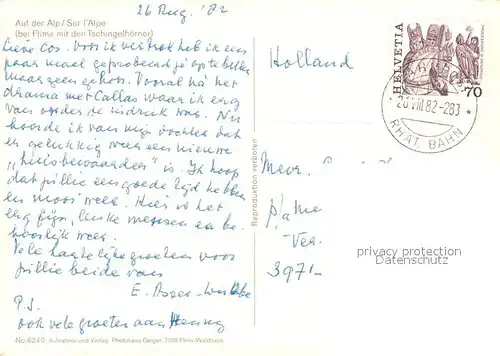 26 Aug. '82
Auf der Alp / Sur l'Alpe
(bei Flims mit den Tschingelhörner)
Lieve Cos. Voor ik vertrok heb ik een
paar maal geprobeerd je op te bellen
maar geen gehoor. Vooral na het
drama met Callas waar ik erg
van onder de indruk was. Nu
hoorde ik van mijn dochter dat
er gelukkig weer een nieuwe
"huisbewaarder" is. Ik hoop
dat jullie een goede tijd hebben
en mooi weer. Hier is het
erg fijn, leuke mensen en be-
hoorlijk weer.
Vele hartelijke groeten voor
jullie beide van
E. Asser
P.S.
ook vele groeten aan Henny
No. 6240 Aufnahme und Verlag: Photohaus Geiger, 7018 Flims-Waldhaus
Reproduktion verboten
Holland
HELVETIA
70
26.VIII.82-283
RHÄT. BAHN
Mevr.
Ver.
3971
privacy protection
Datenschutz